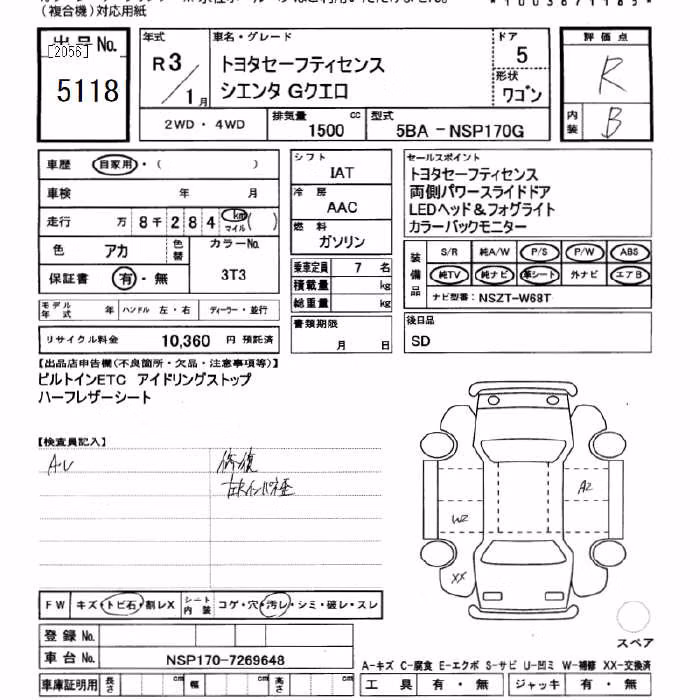 (複合機)対応用紙
出品No.
[2056]
5118
年式
R3/1月
車名・グレード
トヨタセーフティセンス
シエンタ Gクエロ
ドア
5
形状
ワゴン
評価点
R
内装
B
2WD・4WD
排気量
1500
cc
型式
5BA - NSP170G
車歴
自家用・( )
車検 年 月
走行 万 8千 2 8 4 km マイル ( )
色 アカ
色替
カラーNo.
3T3
保証書 有・無
モデル年式 年
ハンドル 左・右
ディーラー・並行
リサイクル料金 10,360 円 預託済
シフト
IAT
冷房
AAC
燃料
ガソリン
乗車定員 7 名
積載量 kg
総重量 kg
書類期限
月 日
セールスポイント
トヨタセーフティセンス
両側パワースライドドア
LEDヘッド&フォグライト
カラーバックモニター
装備品
S/R 純A/W P/S P/W ABS
純TV 純ナビ 革シート 外ナビ エアB
ナビ型番: NSZT-W68T
後日品
SD
【出品店申告欄(不良箇所・欠品・注意事項等)】
ビルトインETC アイドリングストップ
ハーフレザーシート
【検査員記入】
AU
修復
左Rインパネ歪
A2
W2
XX
スペア
FW キズ・トビ石・割レX
シート内装 コゲ・穴・汚レ・シミ・破レ・スレ
登録No.
車台No. NSP170-7269648
車庫証明用 長さ cm 幅 cm 高さ cm
A-キズ C-腐食 E-エクボ S-サビ U-凹ミ W-補修 XX-交換済
工具 有・無 ジャッキ 有・無